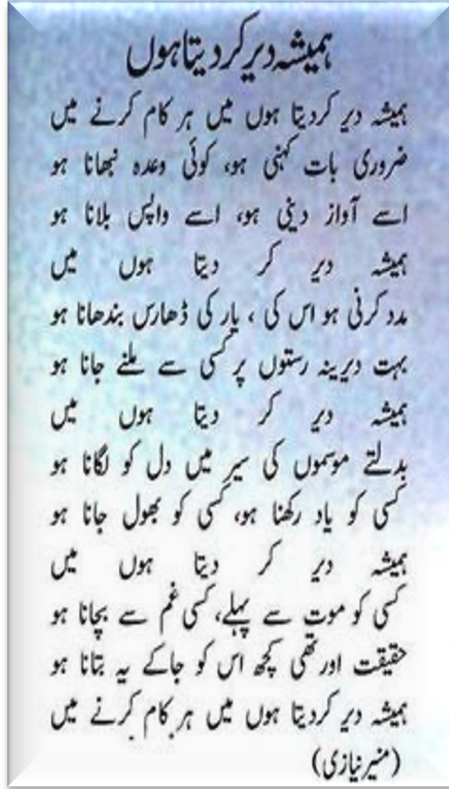 ہمیشہ دیر کر دیتا ہوں
ہمیشہ دیر کر دیتا ہوں میں ہر کام کرنے میں
ضروری بات کہنی ہو، کوئی وعدہ نبھانا ہو
اسے آواز دینی ہو، اسے واپس بلانا ہو
ہمیشہ دیر کر دیتا ہوں میں
مدد کرنی ہو اس کی، یار کی ڈھارس بندھانا ہو
بہت دیرینہ رستوں پر کسی سے ملنے جانا ہو
ہمیشہ دیر کر دیتا ہوں میں
بدلتے موسموں کی سیر میں دل کو لگانا ہو
کسی کو یاد رکھنا ہو، کسی کو بھول جانا ہو
ہمیشہ دیر کر دیتا ہوں میں
کسی کو موت سے پہلے، کسی غم سے بچانا ہو
حقیقت اور تھی کچھ اس کو جاکے یہ بتانا ہو
ہمیشہ دیر کر دیتا ہوں میں ہر کام کرنے میں
(منیر نیازی)